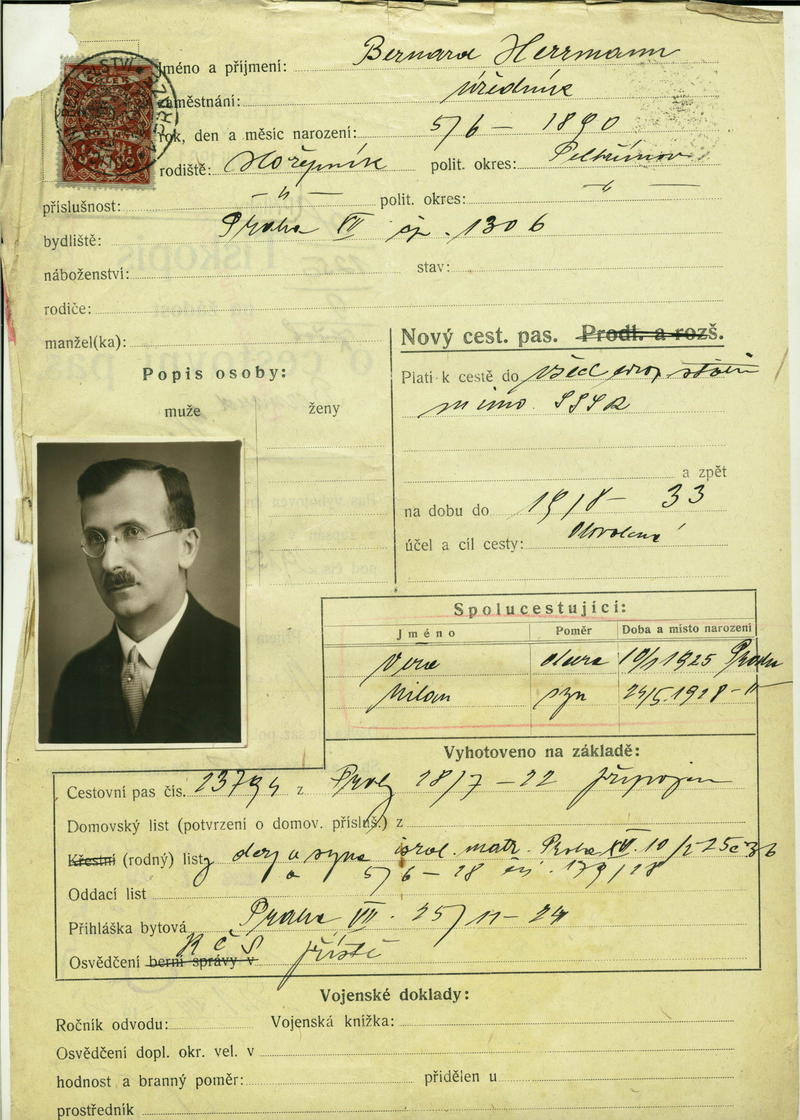 Jméno a příjmení: Bernard Herrmann
zaměstnání: úředník
rok, den a měsíc narození: 5/6 – 1890
rodiště: Hořepník polit. okres: Pelhřimov
příslušnost: – " – polit. okres: – " –
bydliště: Praha VII čp. 1306
náboženství: stav:
rodiče:
manžel(ka):
Nový cest. pas. Prodl. a rozš.
Popis osoby:
muže ženy
Platí k cestě do všech evrop. států
mimo SSSR
a zpět
na dobu do 19/8 – 33
účel a cíl cesty: dovolená
Spolucestující:
Jméno Poměr Doba a místo narození
Věra dcera 10/1 1925 Praha
Milan syn 24/5 1928 – " 
Vyhotoveno na základě:
Cestovní pas čís. 23794 z Prahy 28/7 – 22 připojen
Domovský list (potvrzení o domov. přísluš.) z
Křestní (rodný) list dcery a syna izrael. matr. Praha
a 5/6 – 28 139/28
Oddací list
Přihláška bytová Praha VII. 25/11 – 24
Osvědčení berní správy v RČS příště
Vojenské doklady:
Ročník odvodu: Vojenská knížka:
Osvědčení dopl. okr. vel. v
hodnost a branný poměr: přidělen u
prostředník